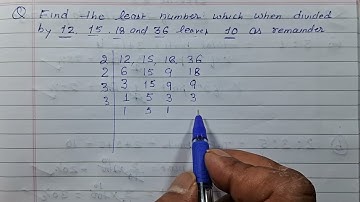 Q Find the least number which when divided
by 12, 15, 18 and 36 leaves 10 as remainder
2 12, 15, 18, 36
2 6 15 9 18
3 3 15 9 9
3 1 5 3 3
1 5 1